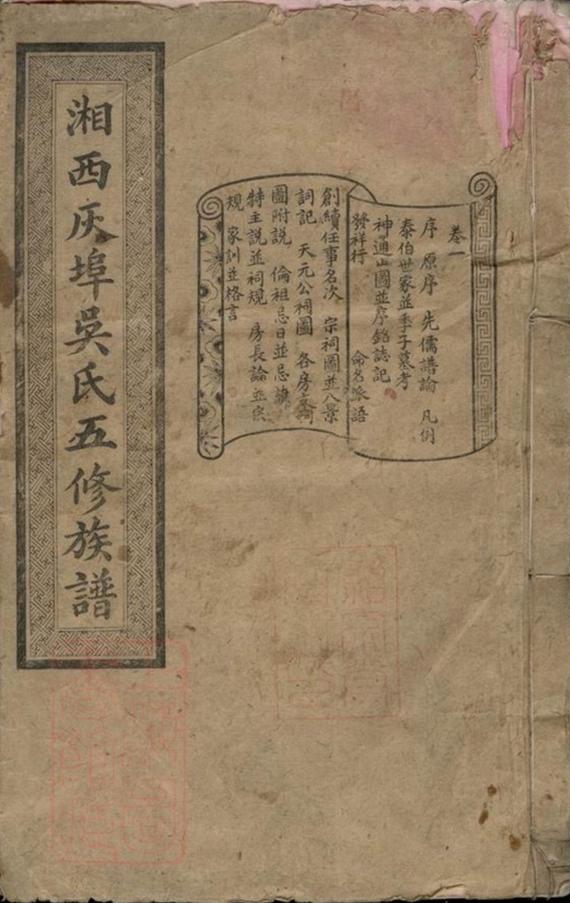 卷一
序 原序 先儒譜論 凡例
泰伯世家並季子墓考
神通山圖並序銘誌記
發祥行 命名派語
創續任事名次 宗祠圖並八景
詞記 天元公祠圖 各房支祠
圖附說 倫祖忌日並忌旗
特主說並祠規 房長論並宗
規 家訓並格言
湘西庆埠吳氏五修族譜